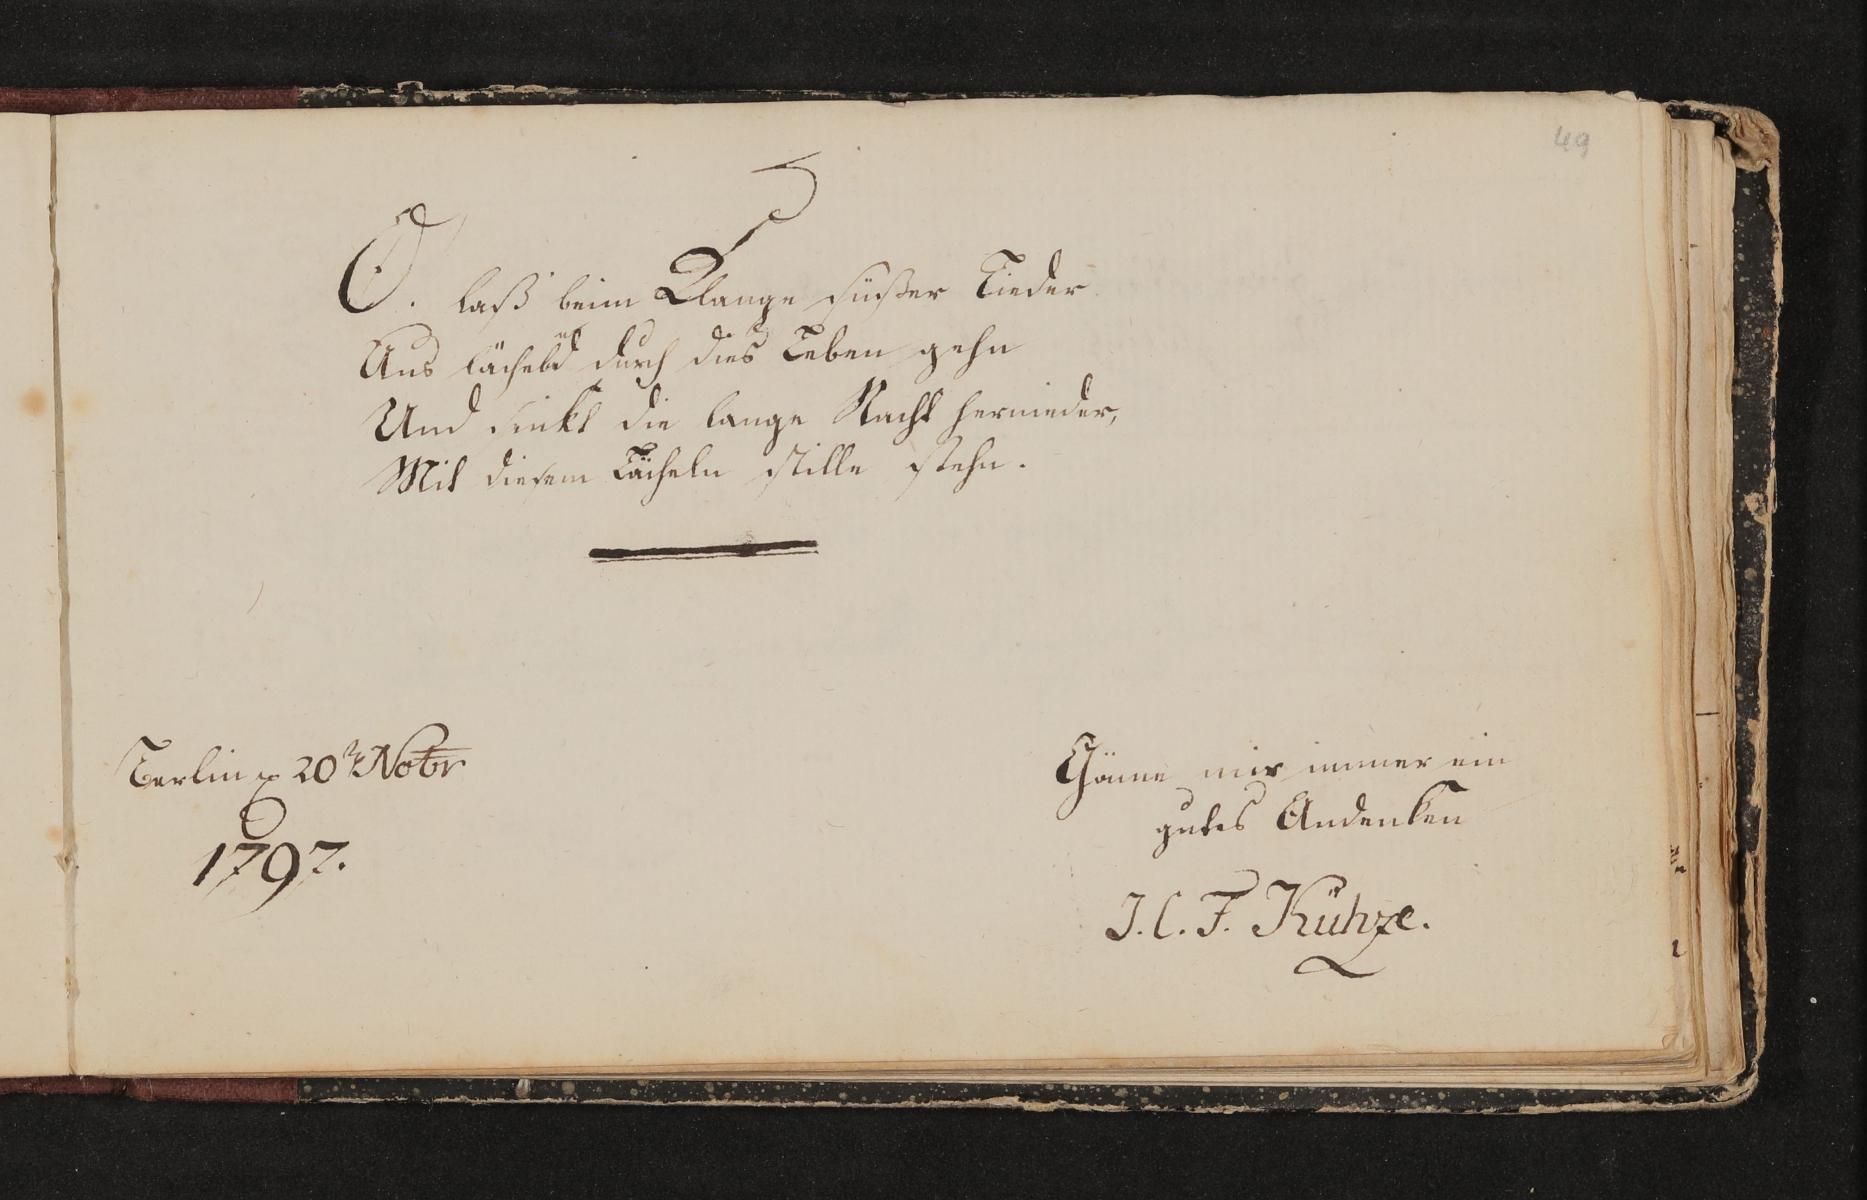 49
O. laß beim Klange süßer Lieder
Uns lächelnd durch dies Leben gehn
Und sinkt die lange Nacht hernieder,
Mit diesem Lächeln stille stehn.
Berlin 20 Nobr
1797.
Gönne mir immer ein
gutes Andenken
J. C. F. Kühze.